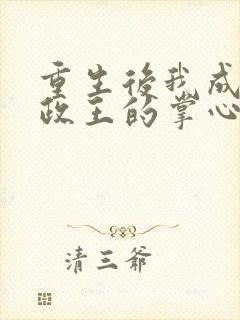 重生後我成
政王的掌心
清三爷